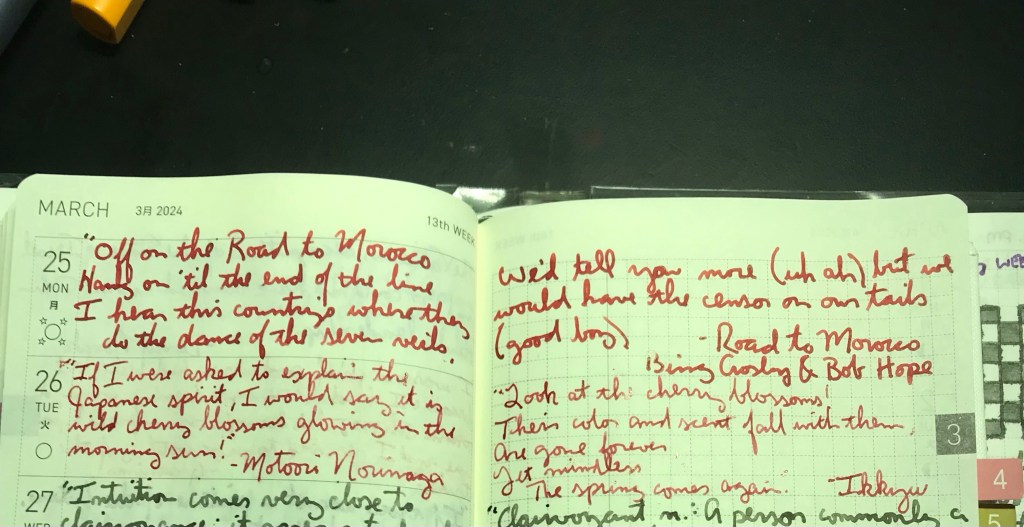 MARCH 3月 2024
13th WEE
25
MON
月
"Off on the Road to Morocco
Hang on 'til the end of the line
I hear this country's where they
do the dance of the seven veils.
26
TUE
火
"If I were asked to explain the
Japanese spirit, I would say it is
wild cherry blossoms glowing in the
morning sun!"
-Motoori Norinaga
27
WED
"Intuition comes very close to
clairvoyance; it appears t
We'd tell you more (uh ah) but we
would have the censor on our tails
(good boy)
- Road to Morocco
Bing Crosby & Bob Hope
"Look at the cherry blossoms!
Their color and scent fall with them,
Are gone forever
Yet mindless
The spring comes again.
-Ikkyu
"Clairvoyant, n.: A person commonly a
3
WEE
4
5